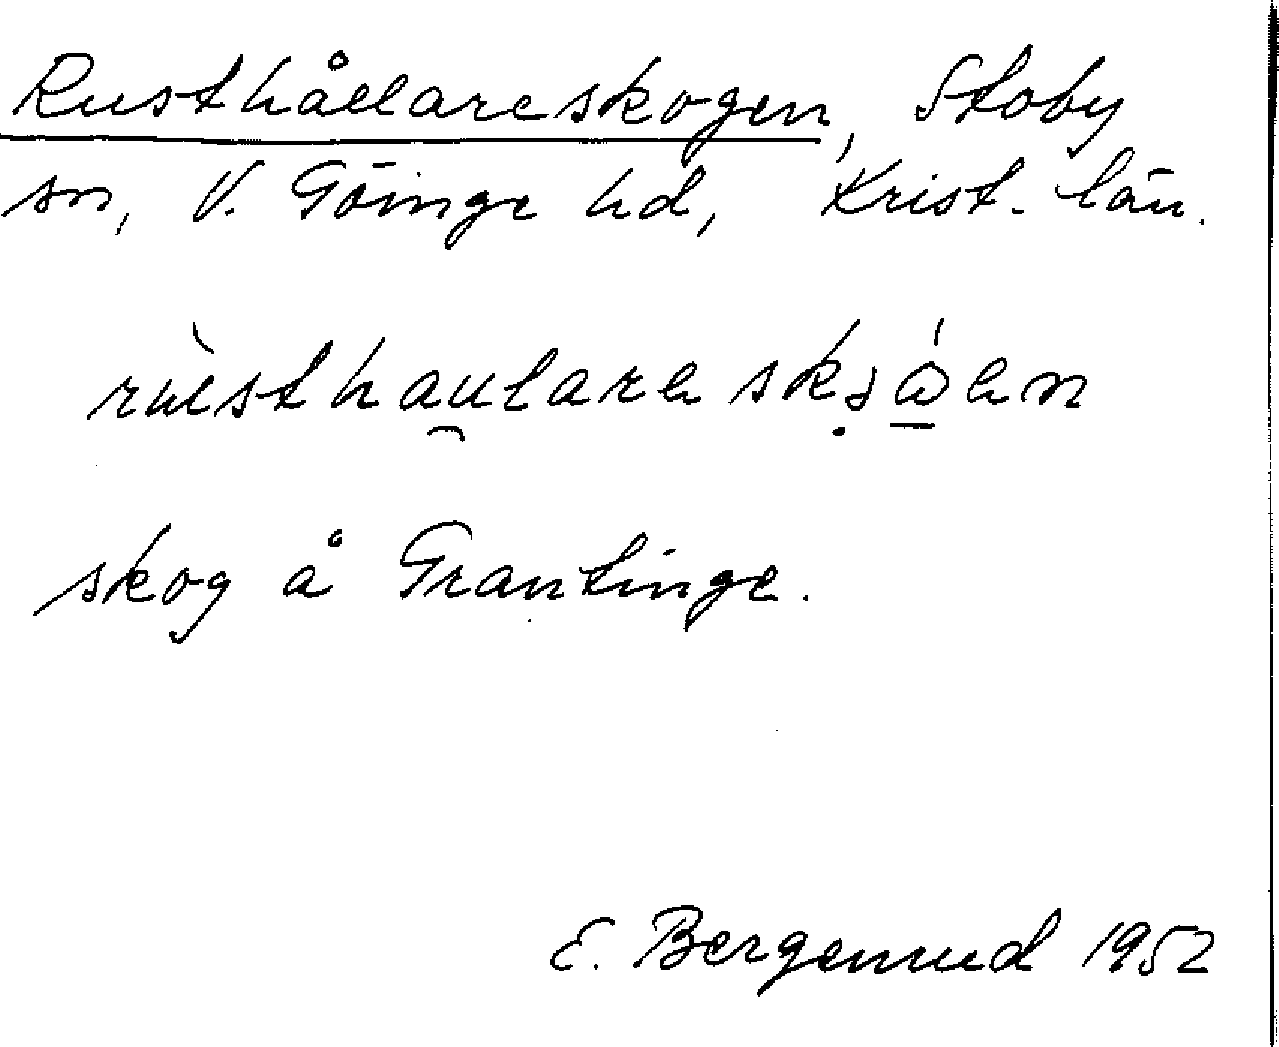 Rusthållareskogen, Stoby
sn, V. Göinge hd, Krist. län.
rùsthau̯lareskɟǻ̱en
skog å Grantinge.
E. Bergemud 1952